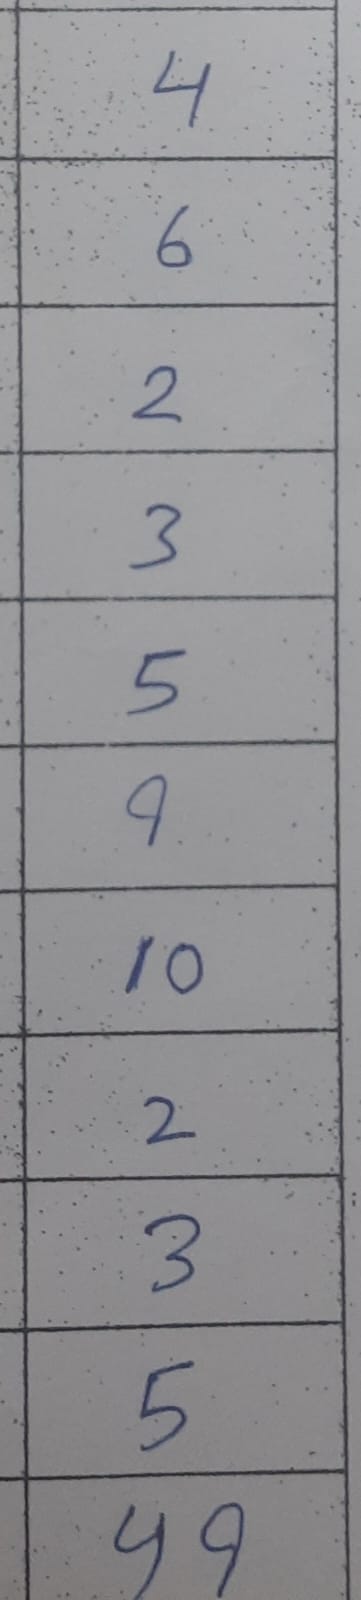 4
6
2
3
5
9
10
2
3
5
49